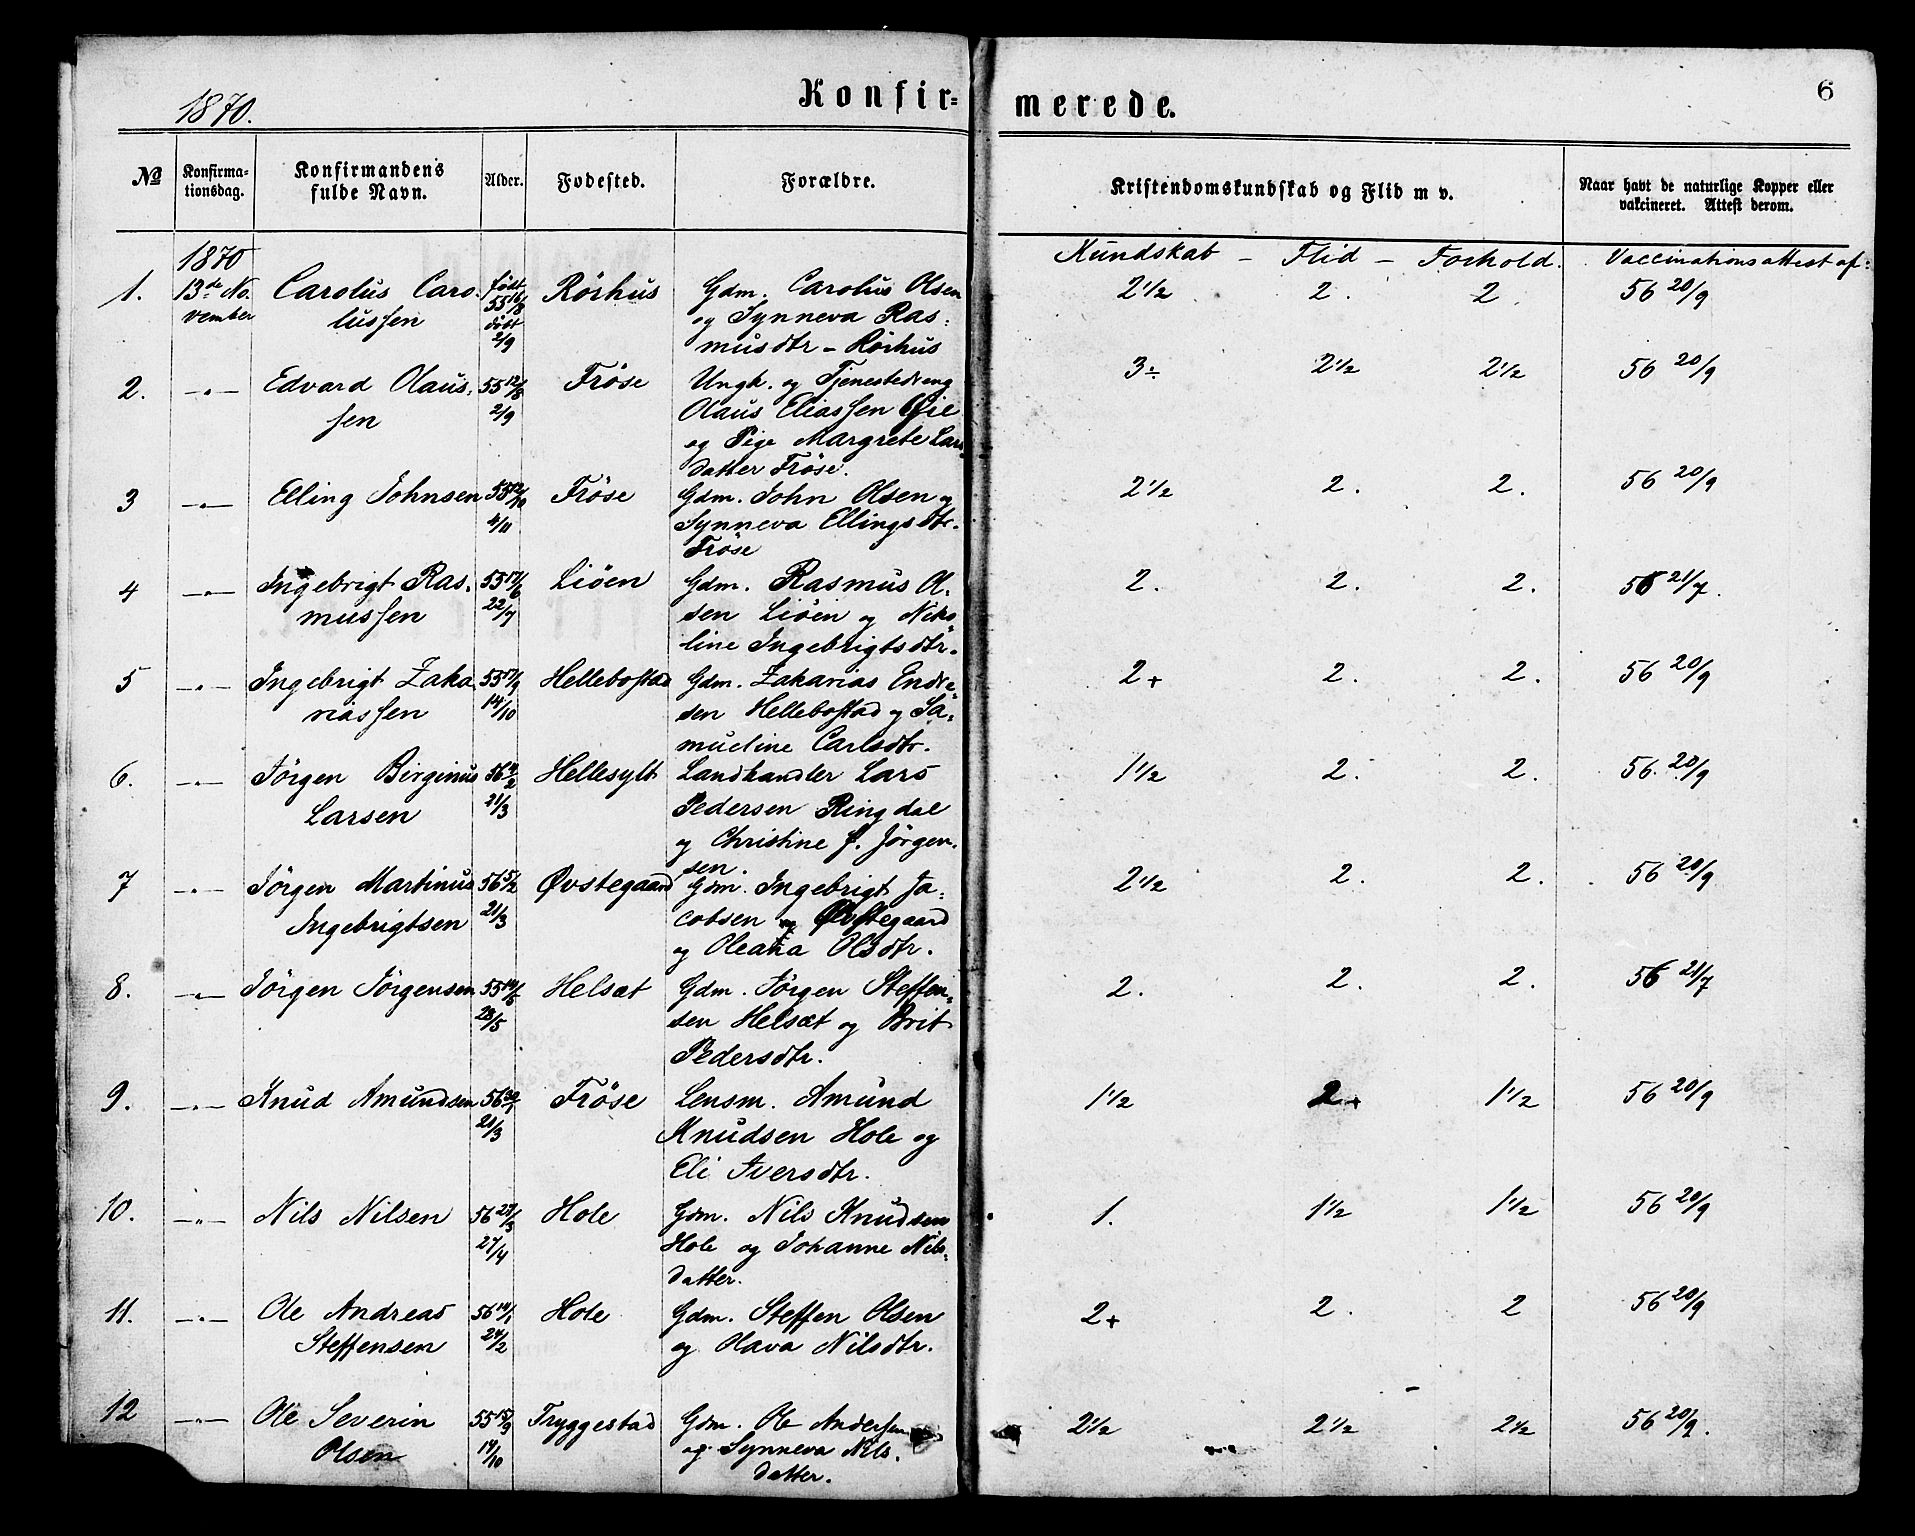 1870.
Konfir=
merede.
6
No
Konfirma-
tionsdag.
Konfirmandens
fulde Navn.
Alder.
Fødested.
Forældre.
Kristendomskundskab og Flid m v.
Naar havt de naturlige Kopper eller
vakcineret. Attest derom.
Kundskab – Flid – Forhold. Vaccinationsattest af:
1. 1870 13de No-
vember
Carolus Caro-
lussen
født
55 16/8
døbt
2/9
Rörhus
Gdm. Carolus Olsen
og Synneva Ras-
musdtr – Rörhus
2½ 2. 2 56 20/9
2. —"— Edvard Olaus-
sen
55 12/8
2/9
Fröse
Ungk. og Tjenestedreng
Olaus Eliassen Øie
og Pige Margrete Lars
datter Fröse.
3÷ 2½ 2½ 56 20/9
3 —"— Elling Johnsen
55 12/10
4/11
Fröse
Gdm. John Olsen og
Synneva Ellingsdtr.
Fröse
2½ 2. 2. 56 20/9
4 —"— Ingebrigt Ras-
mussen
55 17/6
22/7
Liöen
Gdm. Rasmus Ol-
sen Liöen og Niko-
line Ingebrigtsdtr.
2. 2. 2. 56 21/7.
5 —"— Ingebrigt Zaka
riassen
55 17/9
14/10
Hellebostad
Gdm. Zakarias Endre-
sen Hellebostad og Sa-
mueline Carlsdtr.
2+ 2. 2. 56 20/9
6. —"— Jörgen Birginus
Larsen
56
21/3
Hellesylt
Landhandler Lars
Pedersen Ringdal
og Christine f. Jörgen-
sen.
1½ 2. 2. 56. 20/9
7 —"— Jörgen Martinus
Ingebrigtsen
56 5/2
21/3
Øvstegaard
Gdm. Ingebrigt Ja-
cobsen Øvstegaard
og Oleana Olsdtr.
2½ 2. 2. 56 20/9
8. —"— Jörgen Jörgensen
55
28/5
Helsæt
Gdm. Jörgen Steffen-
sen Helsæt og Brit
Pedersdtr.
2. 2. 2. 56 21/7
9. —"— Knud Amundsen
56
21/3
Fröse
Lensm. Amund
Knudsen Hole og
Eli Iversdtr.
1½ 2+ 1½ 56 20/9
10. —"— Nils Nilsen
56 23/3
27/4
Hole
Gdm. Nils Knudsen
Hole og Johanne Nils-
datter.
1. 1½ 1½ 56 20/9
11. —"— Ole Andreas
Steffensen
56 14/1
24/2
Hole
Gdm. Steffen Olsen
og Olava Nilsdtr.
2+ 2. 2 56 20/9
12 —"— Ole Severin
Olsen
55 15/9
14/10
Tryggestad
Gdm. Ole Andersen
og Synneva Nils-
datter.
2½ 2½ 2½ 56 20/9.